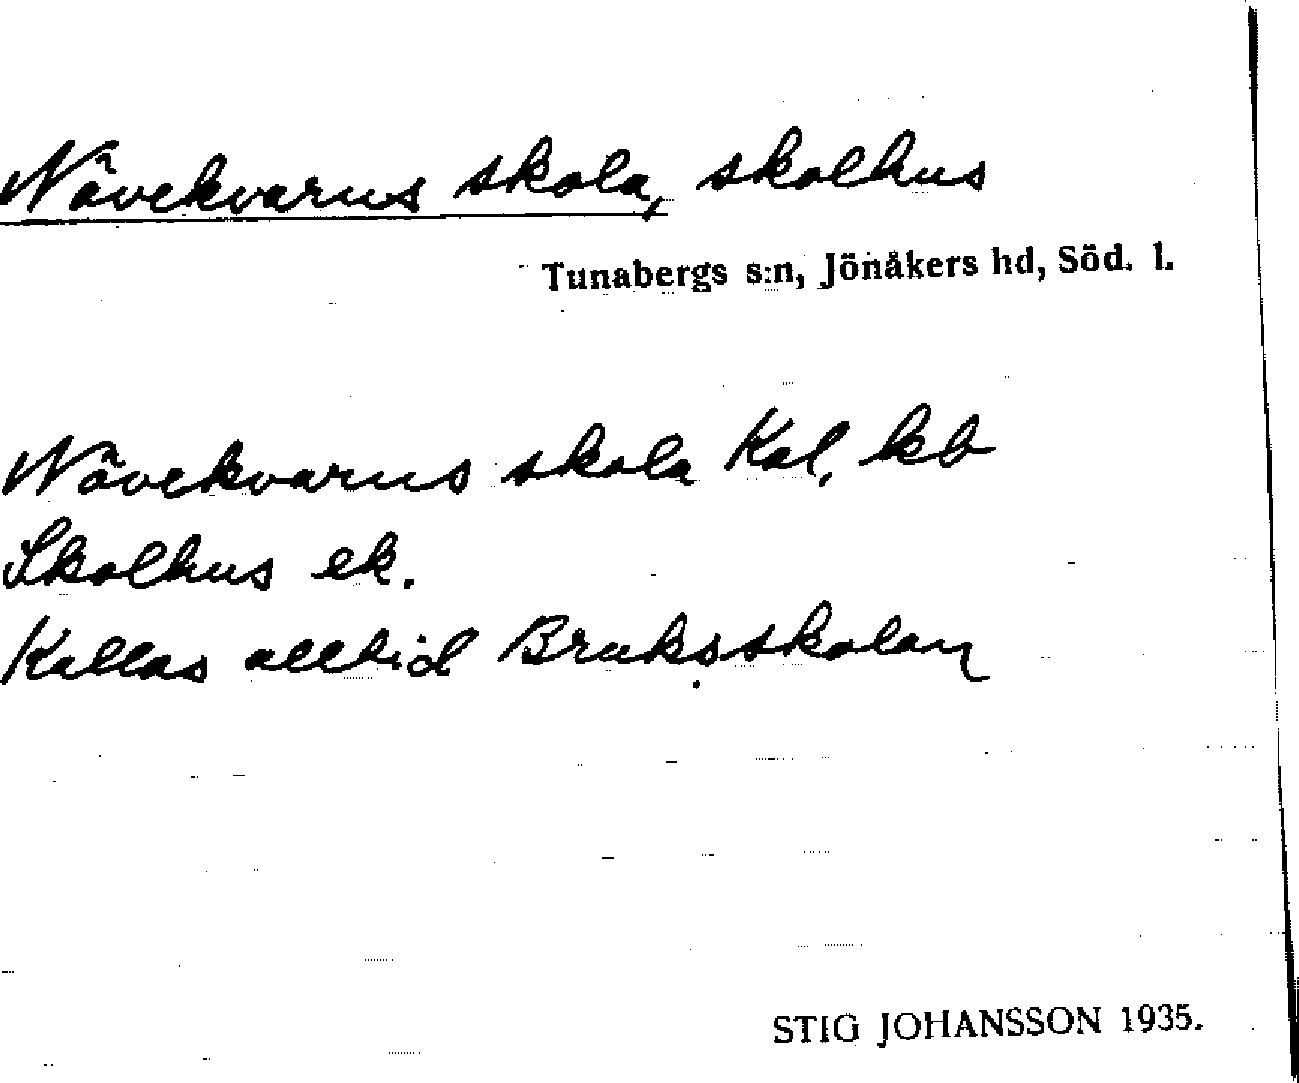 Nävekvarns skola, skolhus
Tunabergs s:n, Jönåkers hd, Söd. l.
Nävekvarns skola Kal, kb
Skolhus ek.
Kallas alltid Bruksskolan
STIG JOHANSSON 1935.